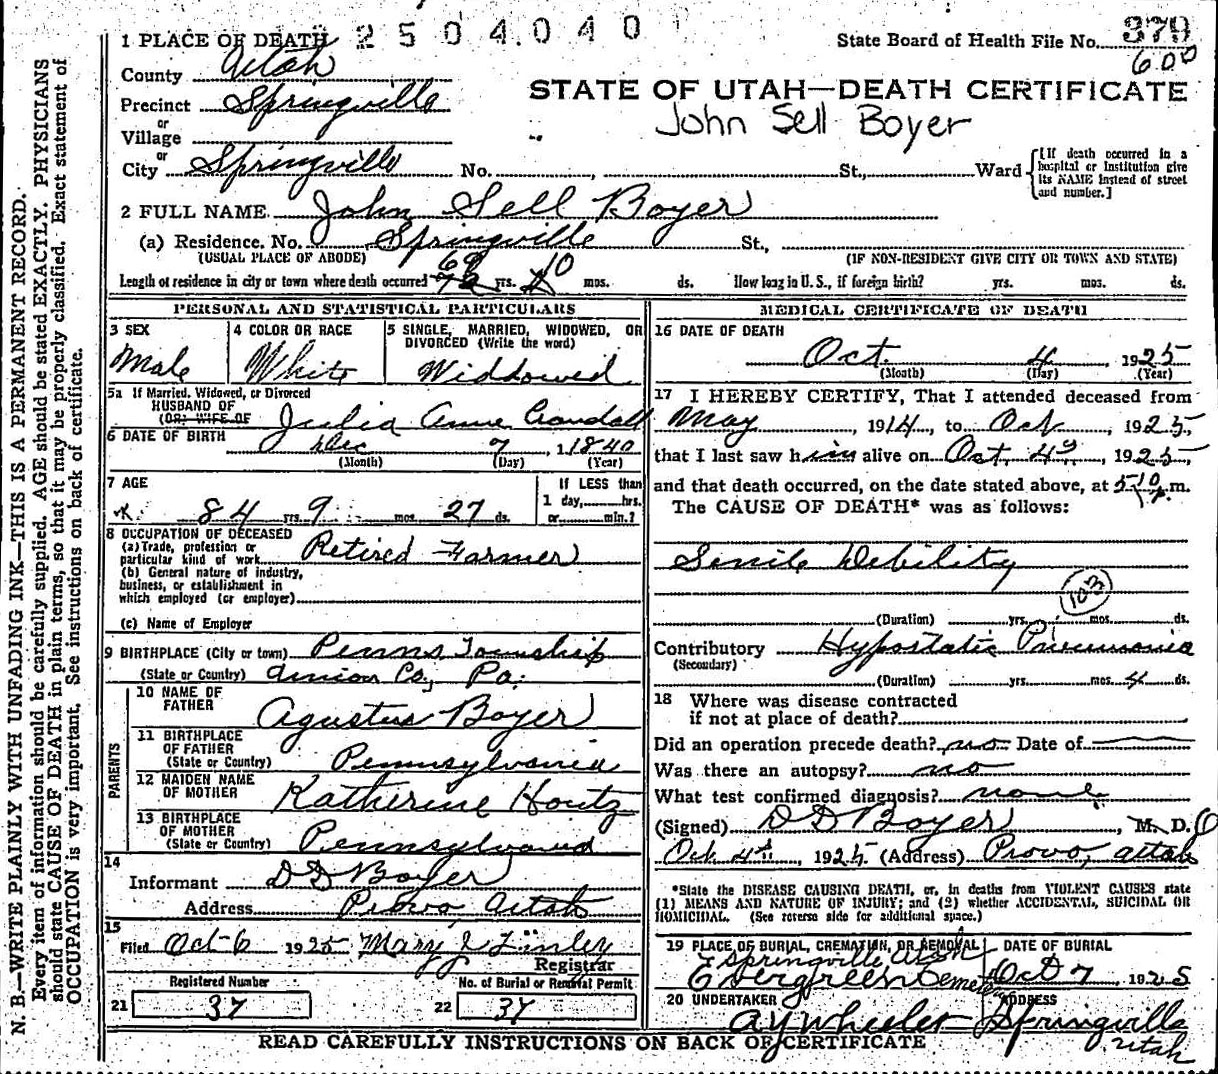 N. B.—WRITE PLAINLY WITH UNFADING INK—THIS IS A PERMANENT RECORD.
Every item of information should be carefully supplied. AGE should be stated EXACTLY. PHYSICIANS
should state CAUSE OF DEATH in plain terms, so that it may be properly classified. Exact statement of
OCCUPATION is very important. See instructions on back of certificate.
2504040
1 PLACE OF DEATH
State Board of Health File No. 379
600
County Utah
STATE OF UTAH—DEATH CERTIFICATE
Precinct Springville
John Sell Boyer
or
Village
or
City Springville No. St., Ward
[If death occurred in a
hospital or institution give
its NAME instead of street
and number.]
2 FULL NAME John Sell Boyer
(a) Residence. No. Springville St.,
(USUAL PLACE OF ABODE) (IF NON-RESIDENT GIVE CITY OR TOWN AND STATE)
Length of residence in city or town where death occurred yrs. 10 mos. ds. How long in U. S., if foreign birth? yrs. mos. ds.
PERSONAL AND STATISTICAL PARTICULARS
3 SEX
Male
4 COLOR OR RACE
White
5 SINGLE, MARRIED, WIDOWED, OR
DIVORCED (Write the word)
Widdowed
5a If Married, Widowed, or Divorced
HUSBAND OF
(OR) WIFE OF Julia Anne Crandall
6 DATE OF BIRTH Dec 7, 1840
(Month) (Day) (Year)
7 AGE
84 yrs. 9 mos. 27 ds.
If LESS than
1 day, hrs.
or min.?
8 OCCUPATION OF DECEASED
(a) Trade, profession or
particular kind of work Retired Farmer
(b) General nature of industry,
business, or establishment in
which employed (or employer)
(c) Name of Employer
9 BIRTHPLACE (City or town) Penns Township
(State or Country) Union Co., Pa.
PARENTS
10 NAME OF
FATHER Agustus Boyer
11 BIRTHPLACE
OF FATHER
(State or Country) Pennsylvania
12 MAIDEN NAME
OF MOTHER Katherine Houtz
13 BIRTHPLACE
OF MOTHER
(State or Country) Pennsylvania
14
Informant D D Boyer
Address Provo Utah
15
Filed Oct-6 1925 Mary J Finley
Registrar
Registered Number
21 37
No. of Burial or Removal Permit
22 37
MEDICAL CERTIFICATE OF DEATH
16 DATE OF DEATH
Oct. 4, 1925
(Month) (Day) (Year)
17 I HEREBY CERTIFY, That I attended deceased from
May, 1914, to Oct, 1925,
that I last saw him alive on Oct. 4th, 1925,
and that death occurred, on the date stated above, at 510 p.m.
The CAUSE OF DEATH* was as follows:
Senile Debility
103
(Duration) yrs. mos. ds.
Contributory Hypostatic Pneumonia
(Secondary)
(Duration) yrs. mos. 4 ds.
18 Where was disease contracted
if not at place of death?
Did an operation precede death? no Date of
Was there an autopsy? no
What test confirmed diagnosis? none
(Signed) D D Boyer, M. D. O
Oct 4th, 1925 (Address) Provo, Utah
*State the DISEASE CAUSING DEATH, or, in deaths from VIOLENT CAUSES state
(1) MEANS AND NATURE OF INJURY; and (2) whether ACCIDENTAL, SUICIDAL OR
HOMICIDAL. (See reverse side for additional space.)
19 PLACE OF BURIAL, CREMATION, OR REMOVAL
Springville Utah
Evergreen Cemetery
DATE OF BURIAL
Oct 7 1925
20 UNDERTAKER
A Y Wheeler
ADDRESS
Springville
Utah
READ CAREFULLY INSTRUCTIONS ON BACK OF CERTIFICATE